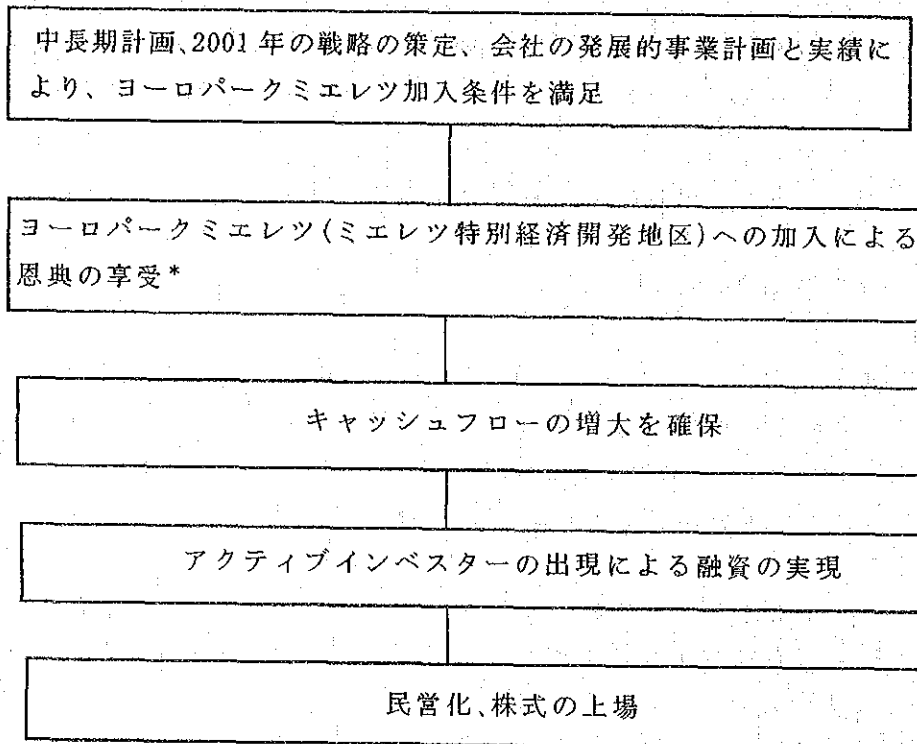 中長期計画、2001年の戦略の策定、会社の発展的事業計画と実績に
より、ヨーロパークミエレツ加入条件を満足
ヨーロパークミエレツ(ミエレツ特別経済開発地区)への加入による
恩典の享受*
キャッシュフローの増大を確保
アクティブインベスターの出現による融資の実現
民営化、株式の上場